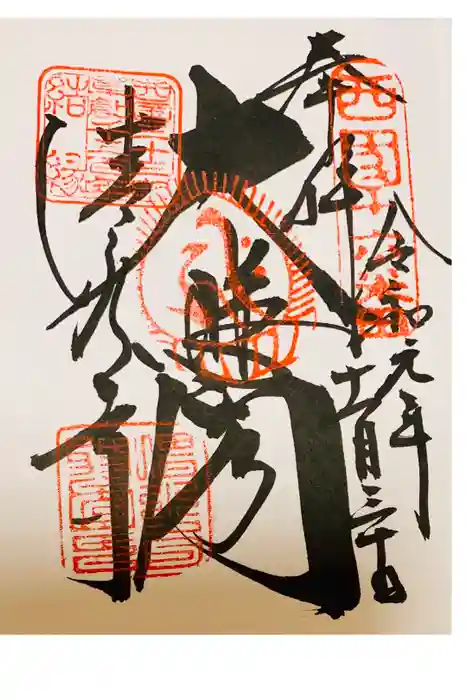 奉拝
西国十六番
令和元年十一月三十日
大悲閣
清水寺